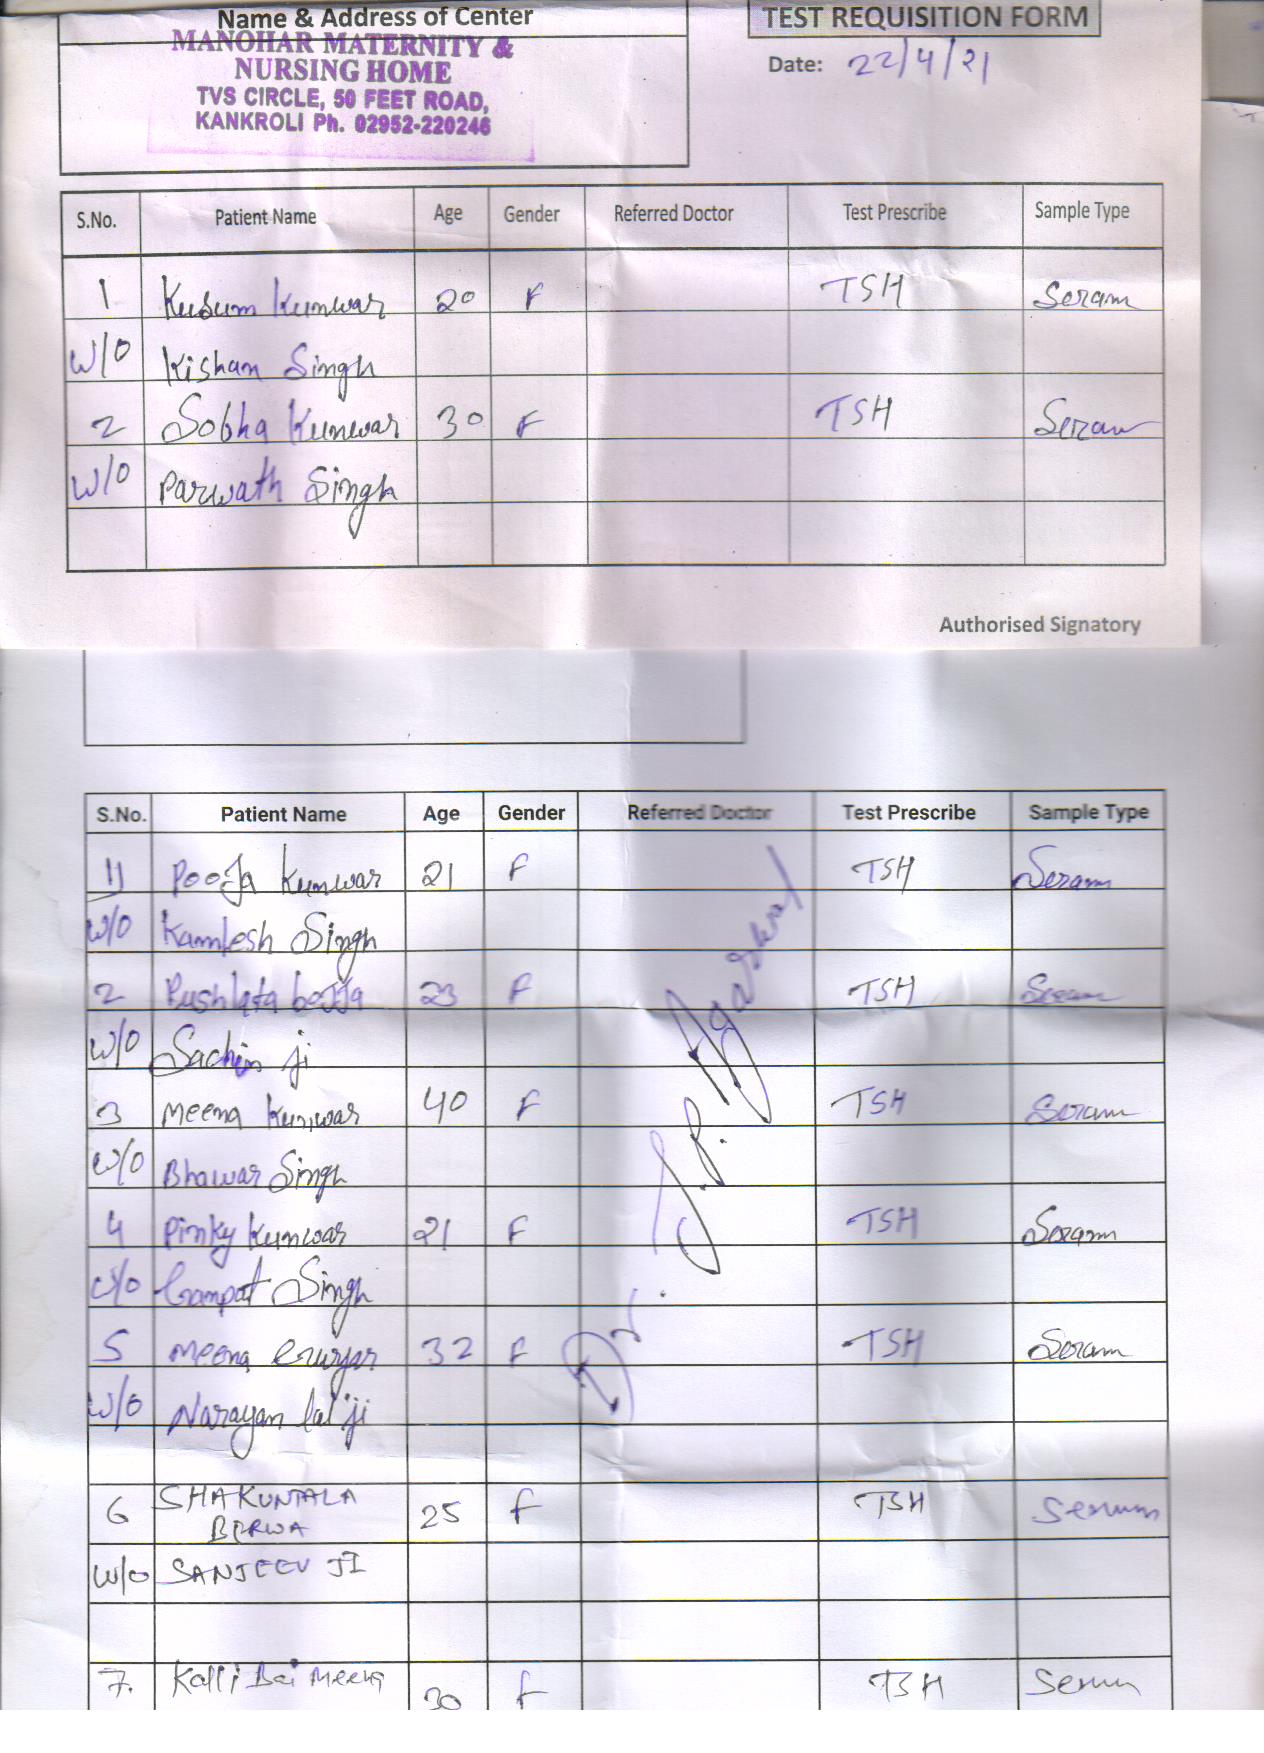 Name & Address of Center
TEST REQUISITION FORM
MANOHAR MATERNITY &
NURSING HOME
TVS CIRCLE, 50 FEET ROAD,
KANKROLI Ph. 02952-220246
Date: 22/4/21
S.No. Patient Name Age Gender Referred Doctor Test Prescribe Sample Type
1 Kusum Kunwar 20 F TSH Seram
W/O Kisham Singh
2 Sobha Kunwar 30 F TSH Seram
W/O Parwath Singh
Authorised Signatory
S.No. Patient Name Age Gender Referred Doctor Test Prescribe Sample Type
11 Pooja Kunwar 21 F TSH Seram
W/O Kamlesh Singh
2 Pushlata 23 F TSH Seram
W/O Sachin ji
3 Meena Kunwar 40 F TSH Seram
W/O Bhawar Singh
4 Pinky Kunwar 21 F TSH Seram
Ganpat Singh
5 Meena Gurjar 32 F TSH Seram
W/O Narayan lal ji
Dr. J.P. Agarwal
6 SHAKUNTALA 25 F TSH Serum
BERWA
W/O SANJEEV JI
7. Kalli Bai Meena 30 F TSH Serum